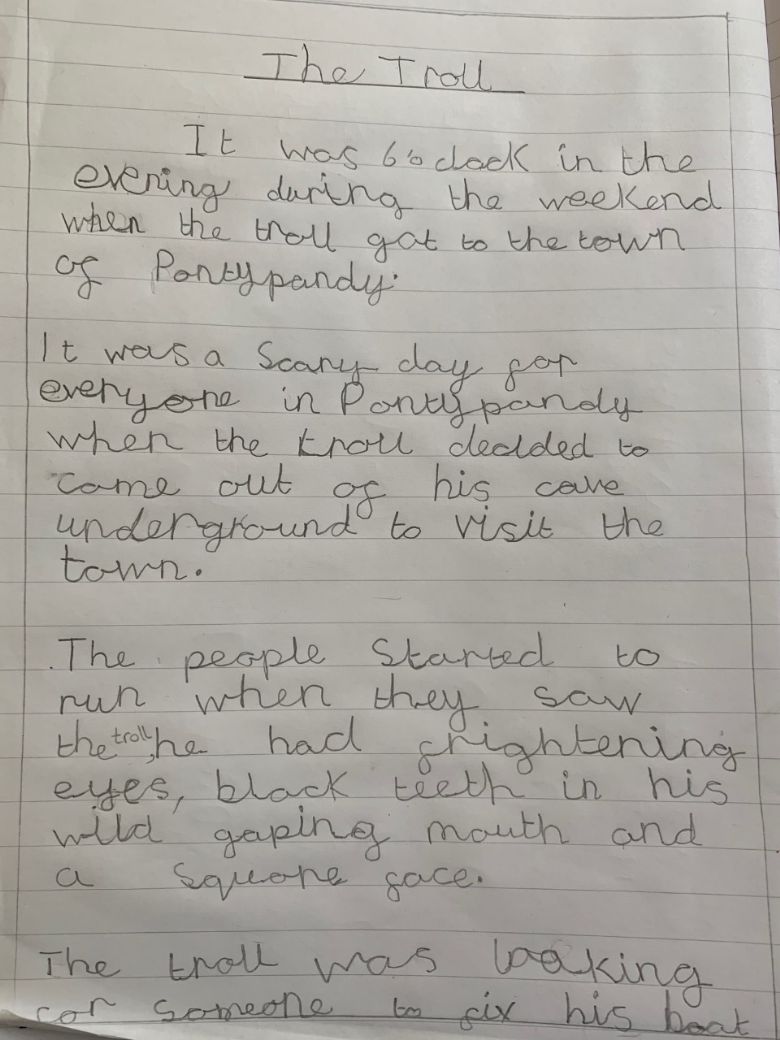 The Troll
It was 6'o clock in the
evening during the weekend
when the troll got to the town
of Pontypandy.
It was a scary day for
everyone in Pontypandy
when the troll decided to
come out of his cave
underground to visit the
town.
The people started to
run when they saw
the troll, he had frightening
eyes, black teeth in his
wild gaping mouth and
a square face.
The troll was looking
for someone to fix his boat